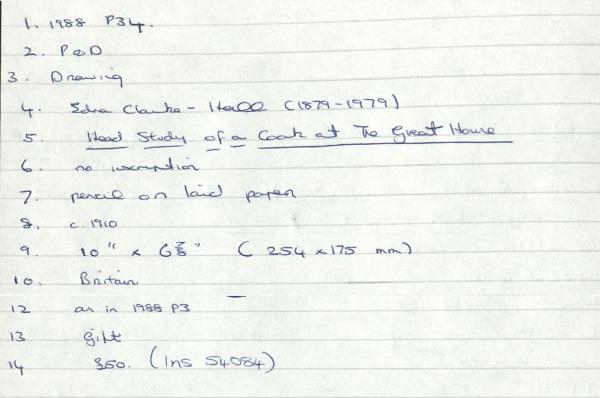 1. 1988 P34.
2. P&D
3. Drawing
4. Edna Clarke-Hall (1879-1979)
5. Head Study of a Cook at The Great House
6. no inscription
7. pencil on laid paper
8. c. 1910
9. 10" x 6 7/8" (254 x 175 mm)
10. Britain
12 as in 1988 P3
13 gift
14 £50. (Ins 54084)